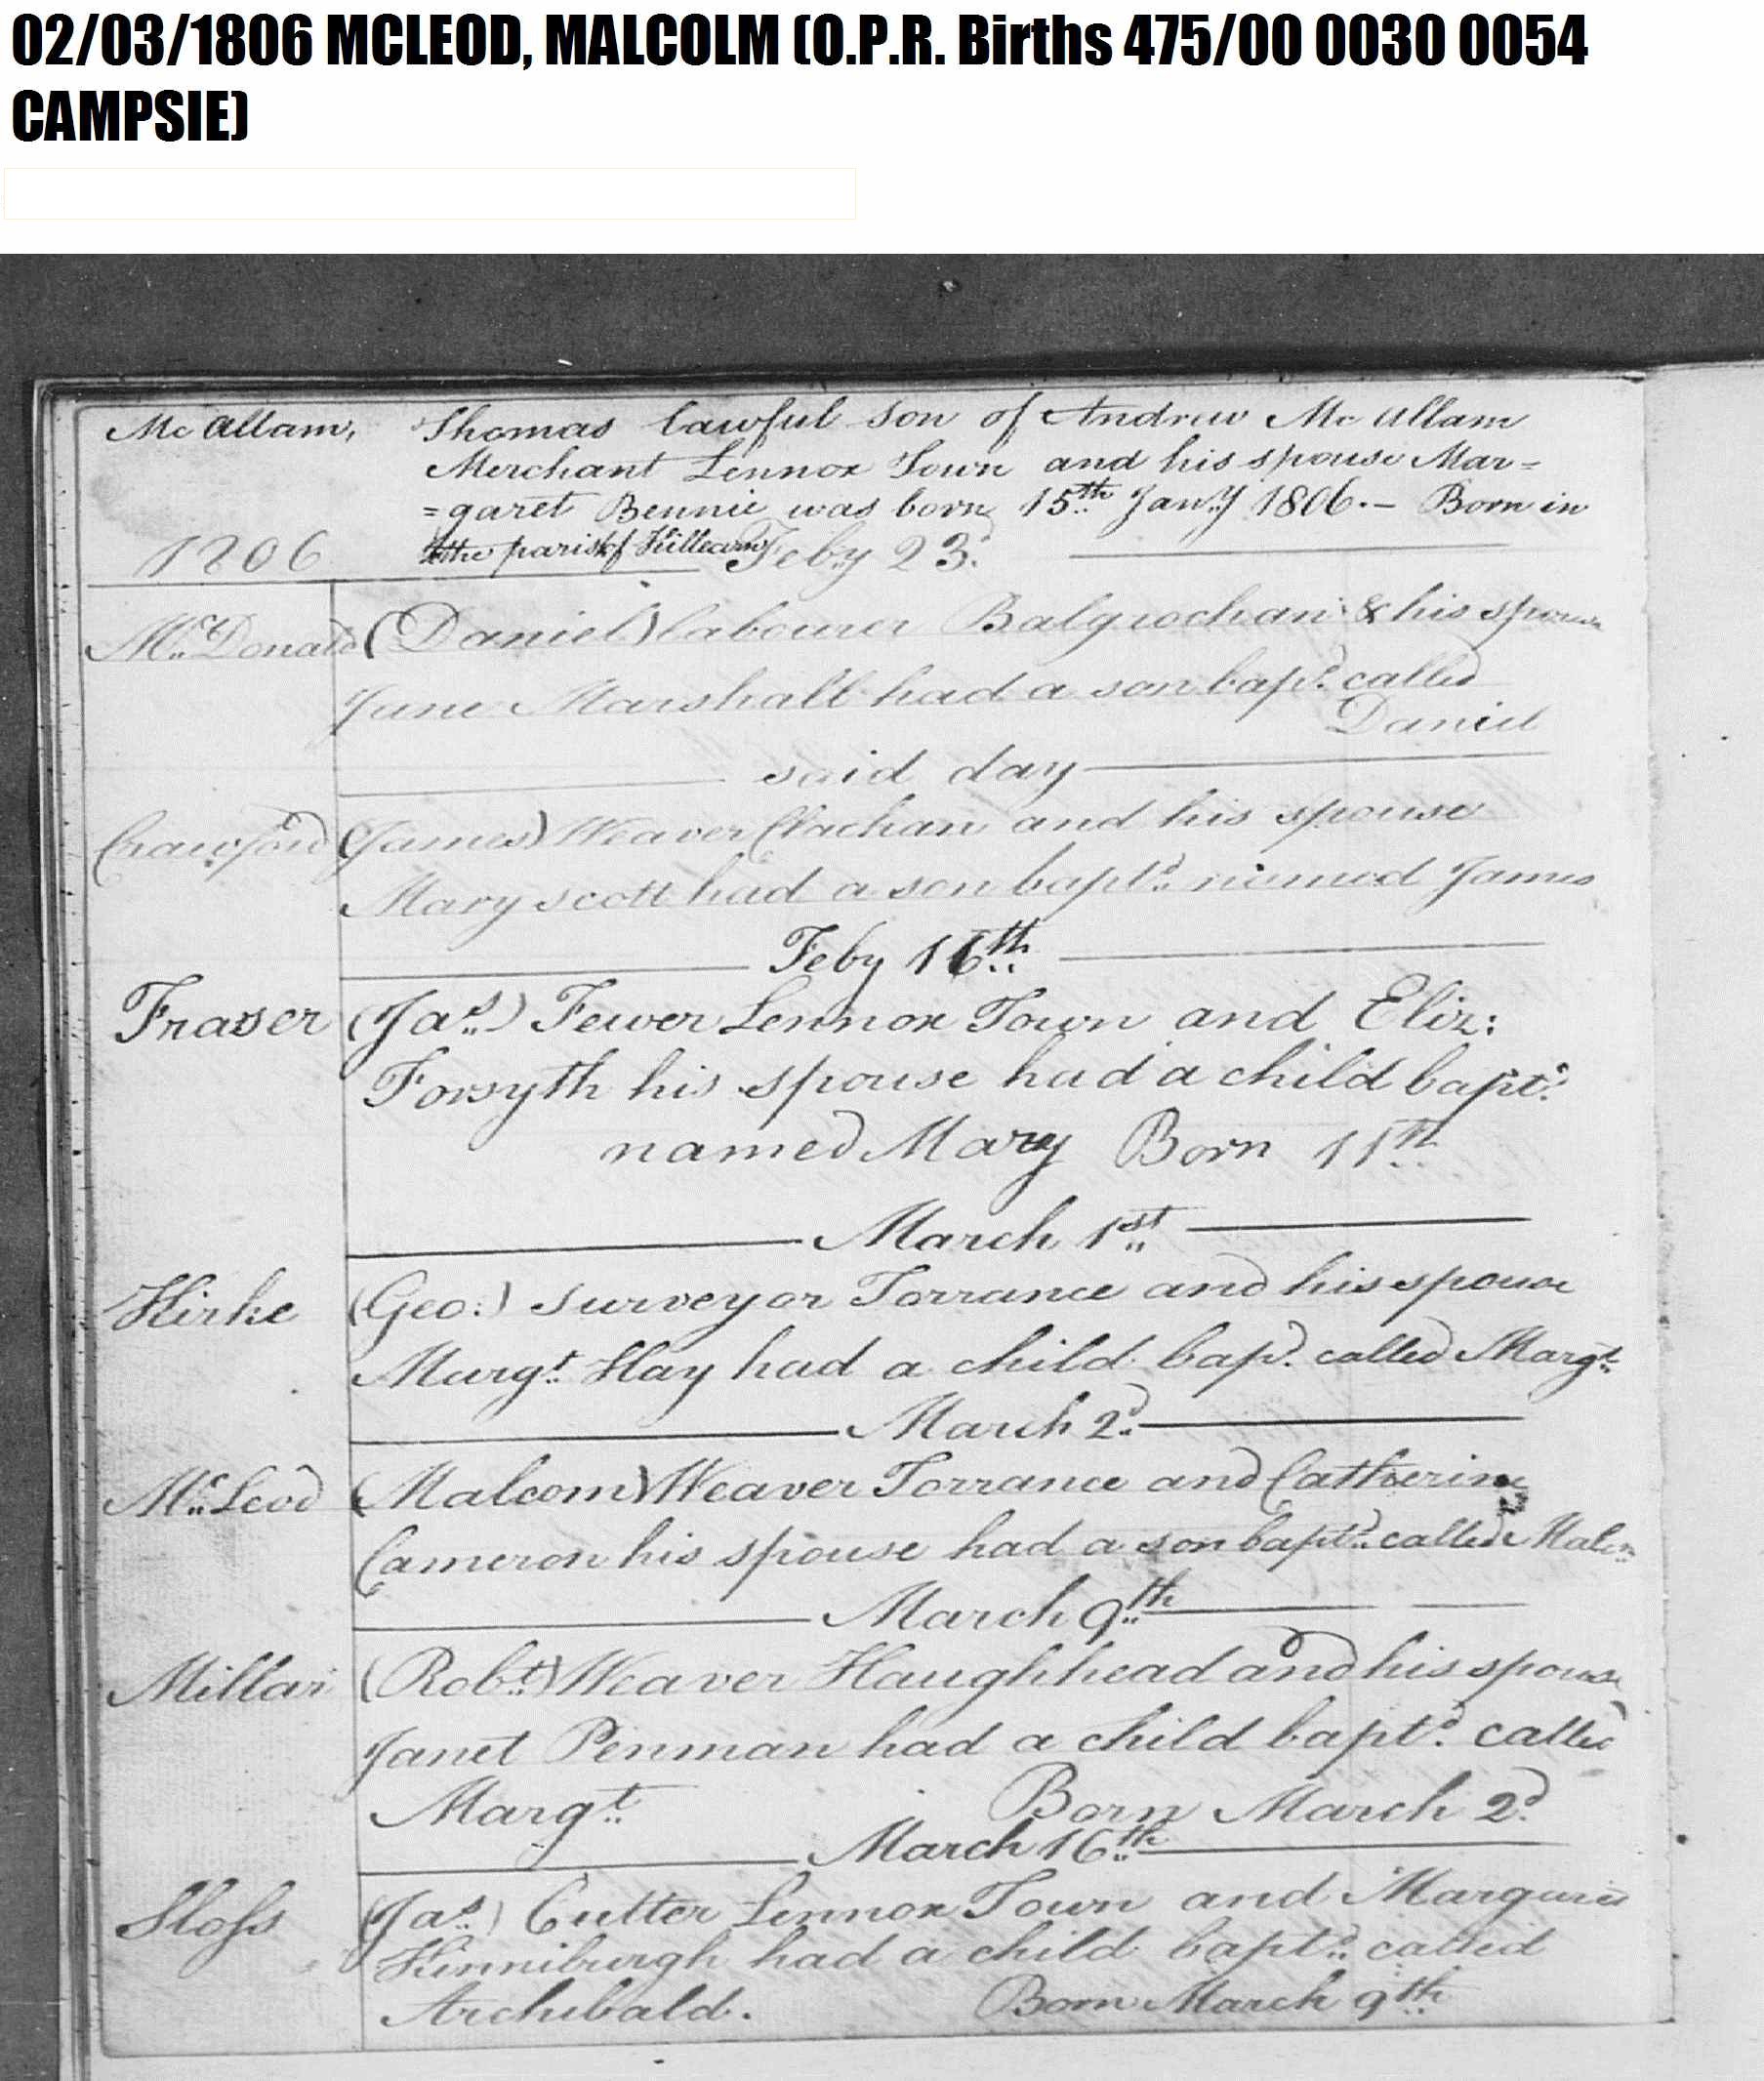 02/03/1806 MCLEOD, MALCOLM (O.P.R. Births 475/00 0030 0054
CAMPSIE)
Mc Allam, Thomas lawful son of Andrew Mc Allam
Merchant Lennox Town and his spouse Mar=
=garet Bennie was born 15th Jany 1806.- Born in
the parish of Killearn
1806 Feby 23d
McDonald (Daniel) labourer Balgrochan & his spouse
June Marshall had a son bapd. called
Daniel
said day
Crawford (James) Weaver Clachan and his spouse
Mary scott had a son baptd. named James
Feby 16th
Fraser (Jas.) Fewer Lennox Town and Eliz:
Forsyth his spouse had a child baptd.
named Mary Born 11th
March 1st
Kirke (Geo:) surveyor Torrance and his spouse
Margt. Hay had a child bapd. called Margt.
March 2d.
McLeod (Malcom) Weaver Torrance and Catherine
Cameron his spouse had a son baptd. called Malcm
March 9th
Millar (Robt.) Weaver Haughhead and his spouse
Janet Penman had a child baptd. called
Margt. Born March 2d.
March 16th
Sloss (Jas.) Cutter Lennox Town and
Kinniburgh had a child baptd. called
Archibald. Born March 9th